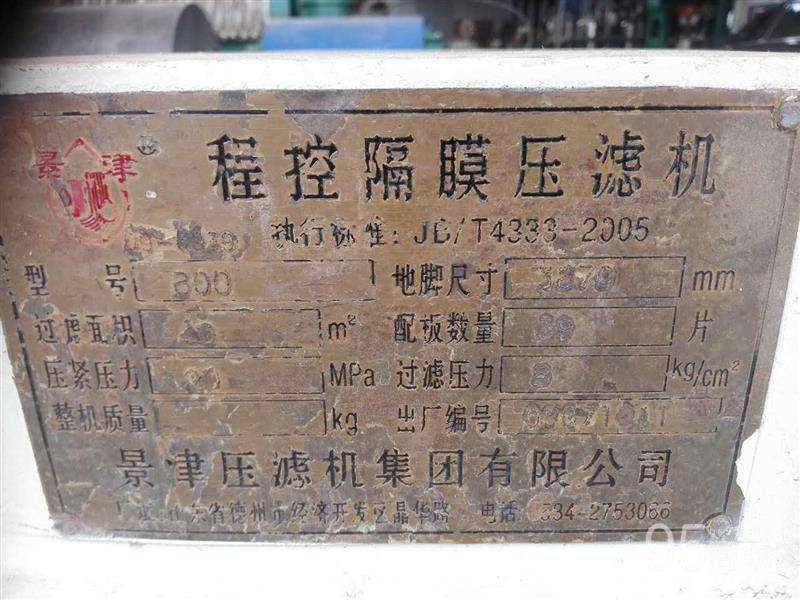 景津
程控隔膜压滤机
执行标准: JB/T4333-2005
型号 800 地脚尺寸 3370 mm
过滤面积 m² 配板数量 39 片
压紧压力 20 MPa 过滤压力 8 kg/cm²
整机质量 kg 出厂编号
景津压滤机集团有限公司
东省德州市经济开发区晶华路 电话: 534-2753066